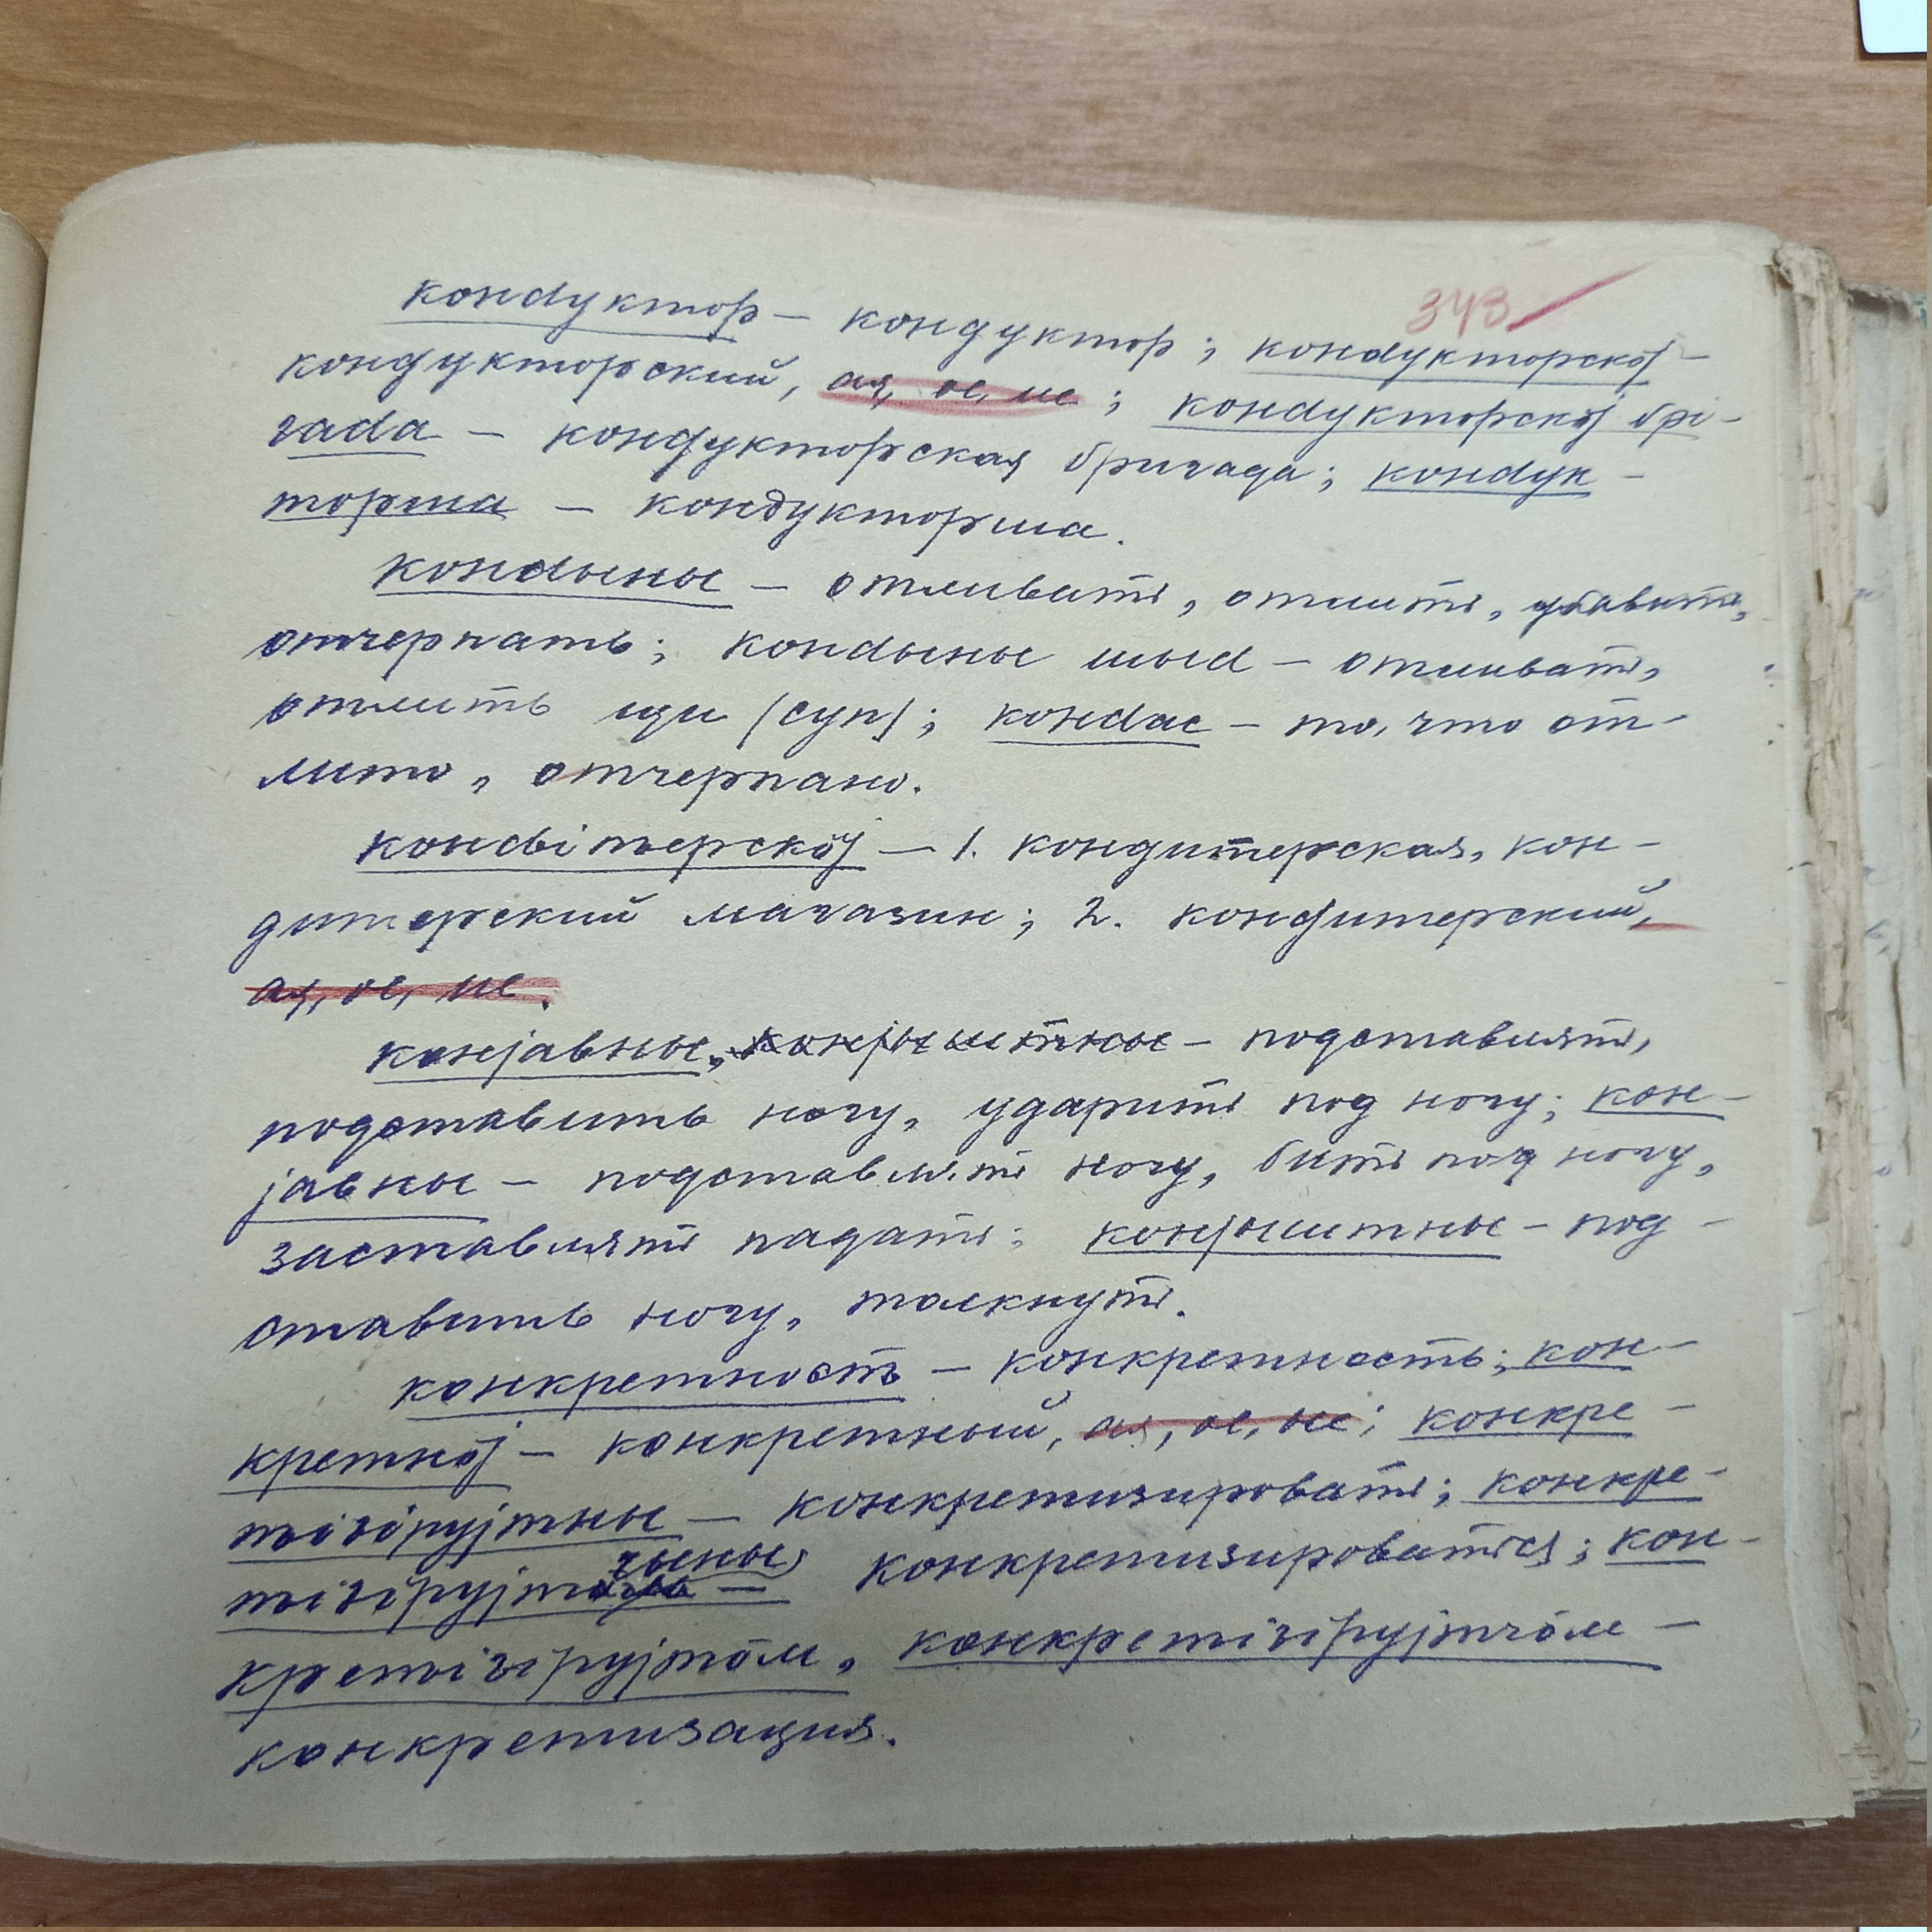 343
кондуктор – кондуктор; кондукторскӧј –
кондукторский, ая, ое, ие; кондукторскӧј брі-
гада – кондукторская бригада; кондук-
торша – кондукторша.
кондыны – отливать, отлить, убавить,
отчерпать; кондыны шыд – отливать,
отлить щи (суп); кондас – то, что от-
лито, отчерпано.
кондітерскӧј – 1. кондитерская, кон-
дитерский магазин; 2. кондитерский,
ая, ое, ие.
конјавны, – подставлять,
подставить ногу, ударить под ногу; кон-
јавны – подставлять ногу, бить под ногу,
заставлять падать; конјыштны – под-
ставить ногу, толкнуть.
конкретность – конкретность; кон-
кретнӧј – конкретный, ая, ое, ые; конкре-
тізірујтны – конкретизировать; конкре-
тізірујтчыны – конкретизироваться; кон-
кретізірујтӧм, конкретізірујтчӧм –
конкретизация.